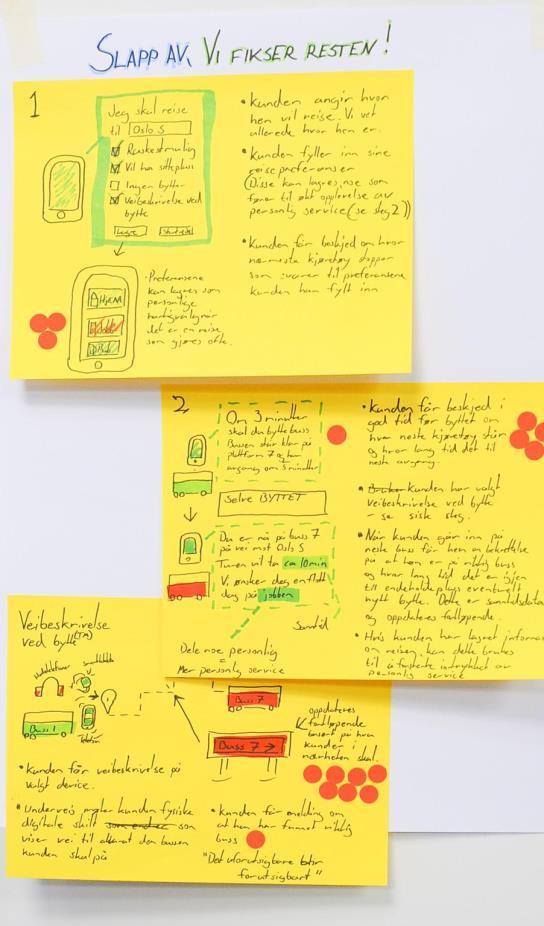 SLAPP AV, VI FIKSER RESTEN!
1
Jeg skal reise
til Oslo S
Raskest mulig
Vil ha sitteplass
Ingen bytter
Veibeskrivelse ved
bytte
Lagre
HJEM
Preferansene
kan lagres som
personlige
det er en reise
som gjøres ofte.
• Kunden angir hvor
hen vil reise. Vi vet
allerede hvor hen er.
• Kunden fyller inn sine
reisepreferanser
(Disse kan lagres, noe som
fører til økt opplevelse av
personlig service (se steg 2))
• Kunden får beskjed om hvor
nærmeste kjøretøy stopper
som svarer til preferansene
kunden har fylt inn
2
Om 3 minutter
skal du bytte buss
Bussen står klar på
plattform 7 og har
avgang om 5 minutter
SELVE BYTTET
Du er nå på buss 7
på vei mot Oslo S
Turen vil ta ca 10 min
Vi ønsker deg en flott
dag på jobben
Samtid
Dele noe personlig
=
Mer personlig service
• Kunden får beskjed i
god tid før byttet om
hvor neste kjøretøy står
og hvor lang tid det til
neste avgang.
• Bruker Kunden har valgt
veibeskrivelse ved bytte
- se siste steg.
• Når kunden går inn på
neste buss får hen en bekreftelse
på at hen er på riktig buss
og hvor lang tid det er igjen
til endeholdeplass eventuelt
nytt bytte. Dette er sanntidsdata
og oppdateres fortløpende.
• Hvis kunden har lagret
om reisen, kan dette brukes
til å forsterke inntrykket av
personlig service
Veibeskrivelse
ved bytte (TM)
Buss 1
Telefon
Buss 7
Buss 7 →
oppdateres
fortløpende
basert på hva
kunder i
nærheten skal.
• Kunden får veibeskrivelse på
valgt device.
• Underveis møter kunden fysiske
digitale skilt som endrer som
viser vei til akkurat den bussen
kunden skal på
• Kunden får melding om
at hen har funnet riktig
buss
"Det uforutsigbare blir
forutsigbart"